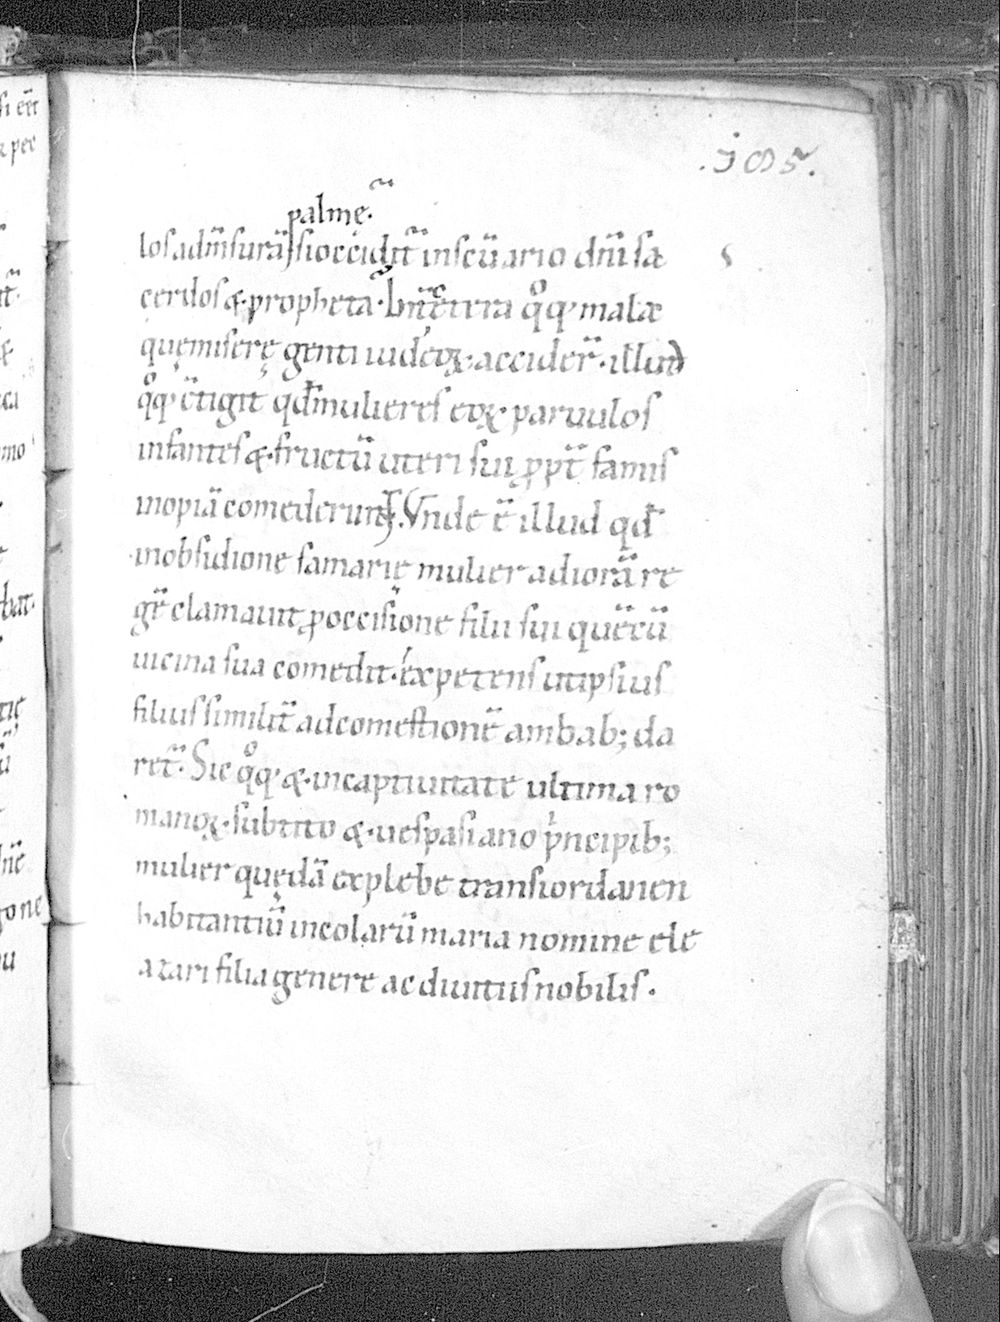 .105.
palme.
los ad m̄surā si occidit̄ in scūario dn̄i sa
cerdos &·propheta·Hn̄c etera q̊q; mala
quę miserę genti iudeoꝝ·acciderꝭ·illud
q̊q; c̄tigit qđ mulieres eoꝝ·paruulos
infantes &·fructū uteri sui ꝓpt̄ famis
inopiā comederunt. Vnde ē illud qđ
in obsidione samarię mulier ad iorā re
gē clamauit ꝓ occisione filii sui quē cū
uicina sua comedit·expetens ut ipsius
filius similit̄ ad comestionē ambab; da
ret̄·Sic q̊q; &·in captiuitate ultima ro
manoꝝ·sub tito &·uespasiano p̍ncipib;
mulier quędā ex plebe trans iordanen
habitantiū incolarū maria nomine ele
azari filia genere ac diuitiis nobilis·